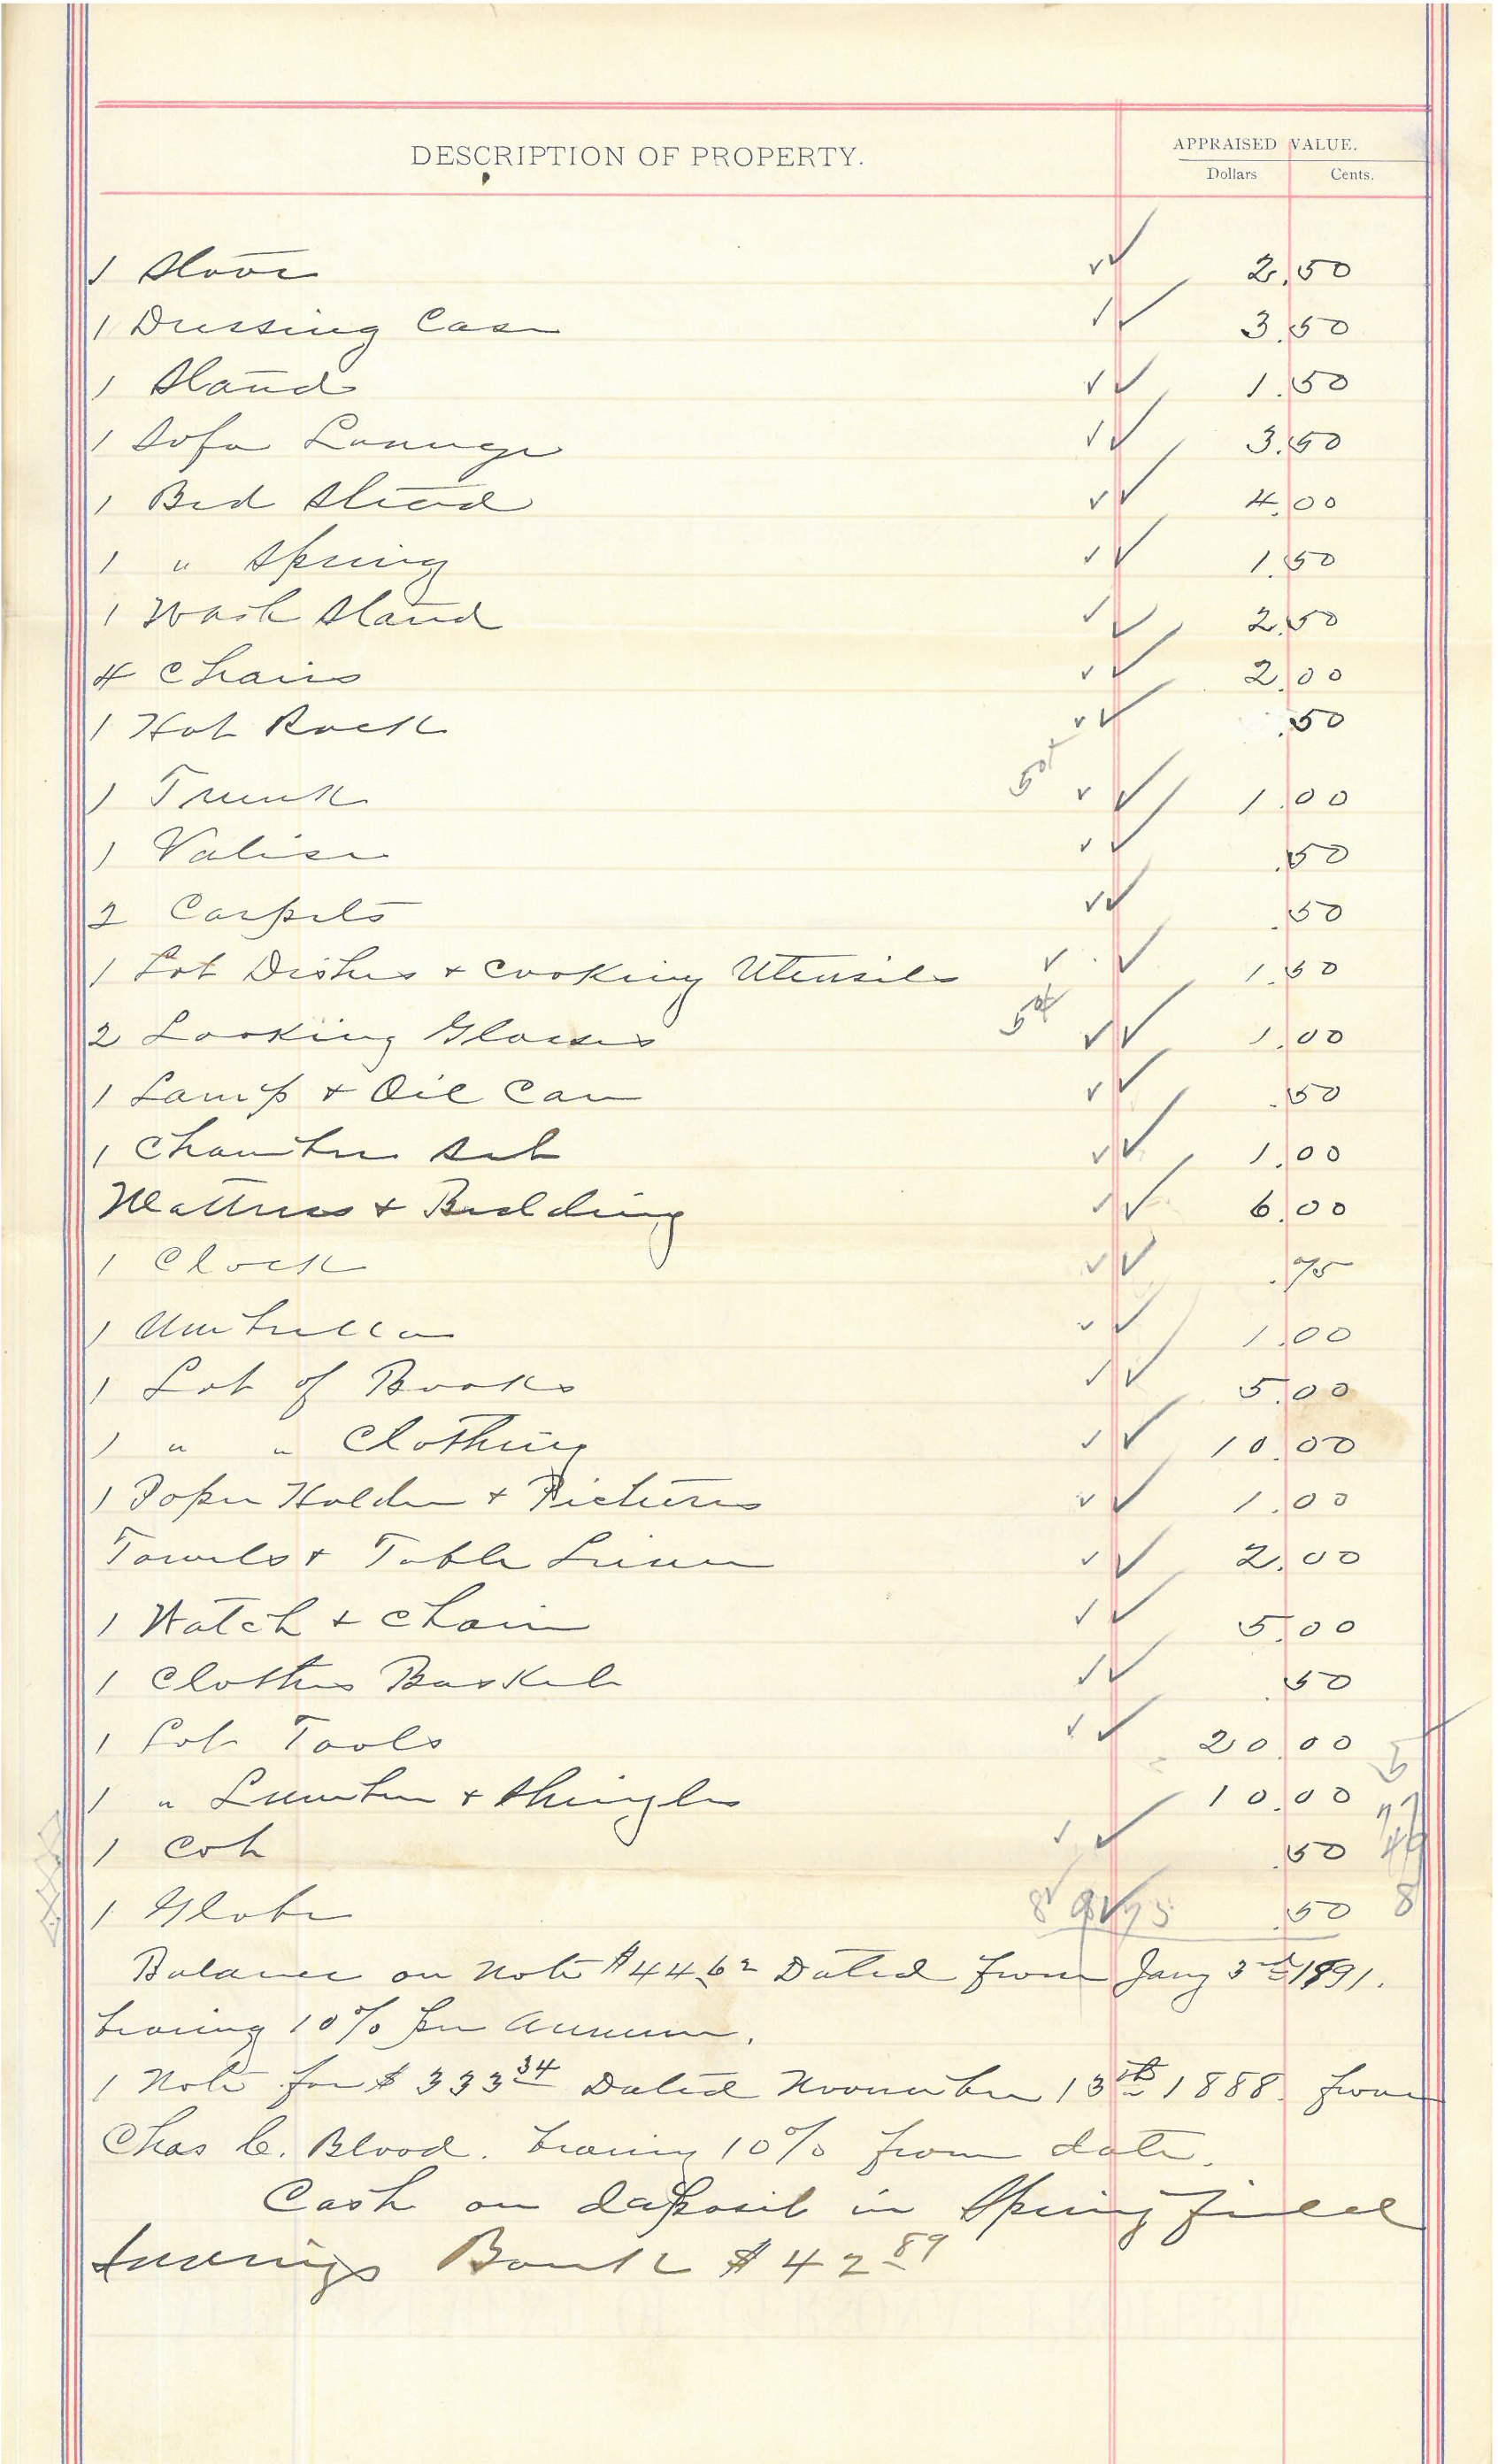 DESCRIPTION OF PROPERTY.
APPRAISED VALUE.
Dollars Cents.
1 Stove 2.50
1 Dressing Case 3.50
1 Stand 1.50
1 Sofa Lounge 3.50
1 Bed Stead 4.00
1 " Spring 1.50
1 Wash Stand 2.50
4 Chairs 2.00
1 Hat Rack .50
1 Trunk 1.00
1 Valise .50
2 Carpets .50
1 Lot Dishes + Cooking Utensils 1.50
2 Looking Glasses 1.00
1 Lamp + Oil Can .50
1 Chamber Set 1.00
Mattress + Bedding 6.00
1 Clock .75
1 Umbrella 1.00
1 Lot of Books 5.00
1 " " Clothing 10.00
1 Paper Holder + Pictures 1.00
Towels + Table Linen 2.00
1 Watch + Chain 5.00
1 Clothes Basket .50
1 Lot Tools 20.00
1 " Lumber + Shingles 10.00
1 Cot .50
1 Globe .50
Balance on Note $44 62 Dated from Jany 3rd 1891.
bearing 10% per Annum.
1 Note for $333 34 Dated November 13th 1888 from
Chas C. Blood. bearing 10% from date.
Cash on deposit in Springfield
Savings Bank $42 89